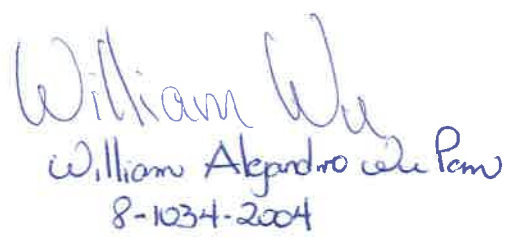 William Wu
William Alejandro Wu Pam
8-1034-2004